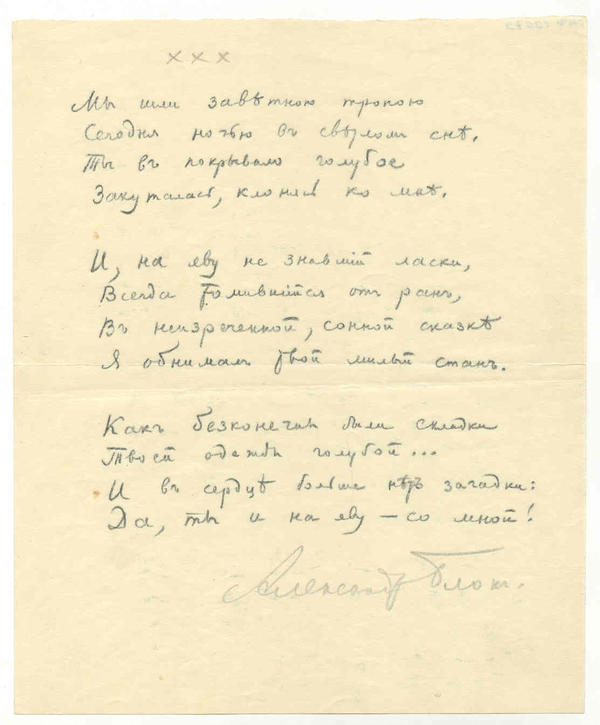 × × ×
Мы шли завѣтною тропою
Сегодня ночью въ свѣтломъ снѣ,
Ты въ покрывало голубое
Закуталась, клонясь ко мнѣ.
И, на яву не знавшій ласки,
Всегда томившійся отъ ранъ,
Въ неизреченной, сонной сказкѣ
Я обнималъ твой милый станъ.
Какъ безконечны были складки
Твоей одежды голубой...
И въ сердцѣ больше нѣтъ загадки:
Да, ты и на яву – со мной!
Александр Блок.